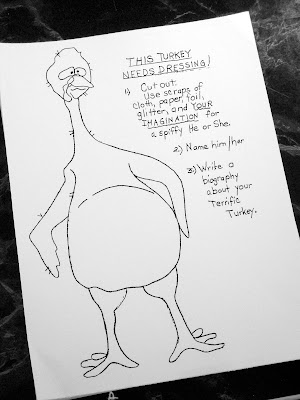 THIS TURKEY
NEEDS DRESSING!
1) Cut out.
Use scraps of
cloth, paper, foil,
glitter, and YOUR
IMAGINATION for
a spiffy He or She.
2) Name him/her
3) Write a
biography
about your
Terrific
Turkey.